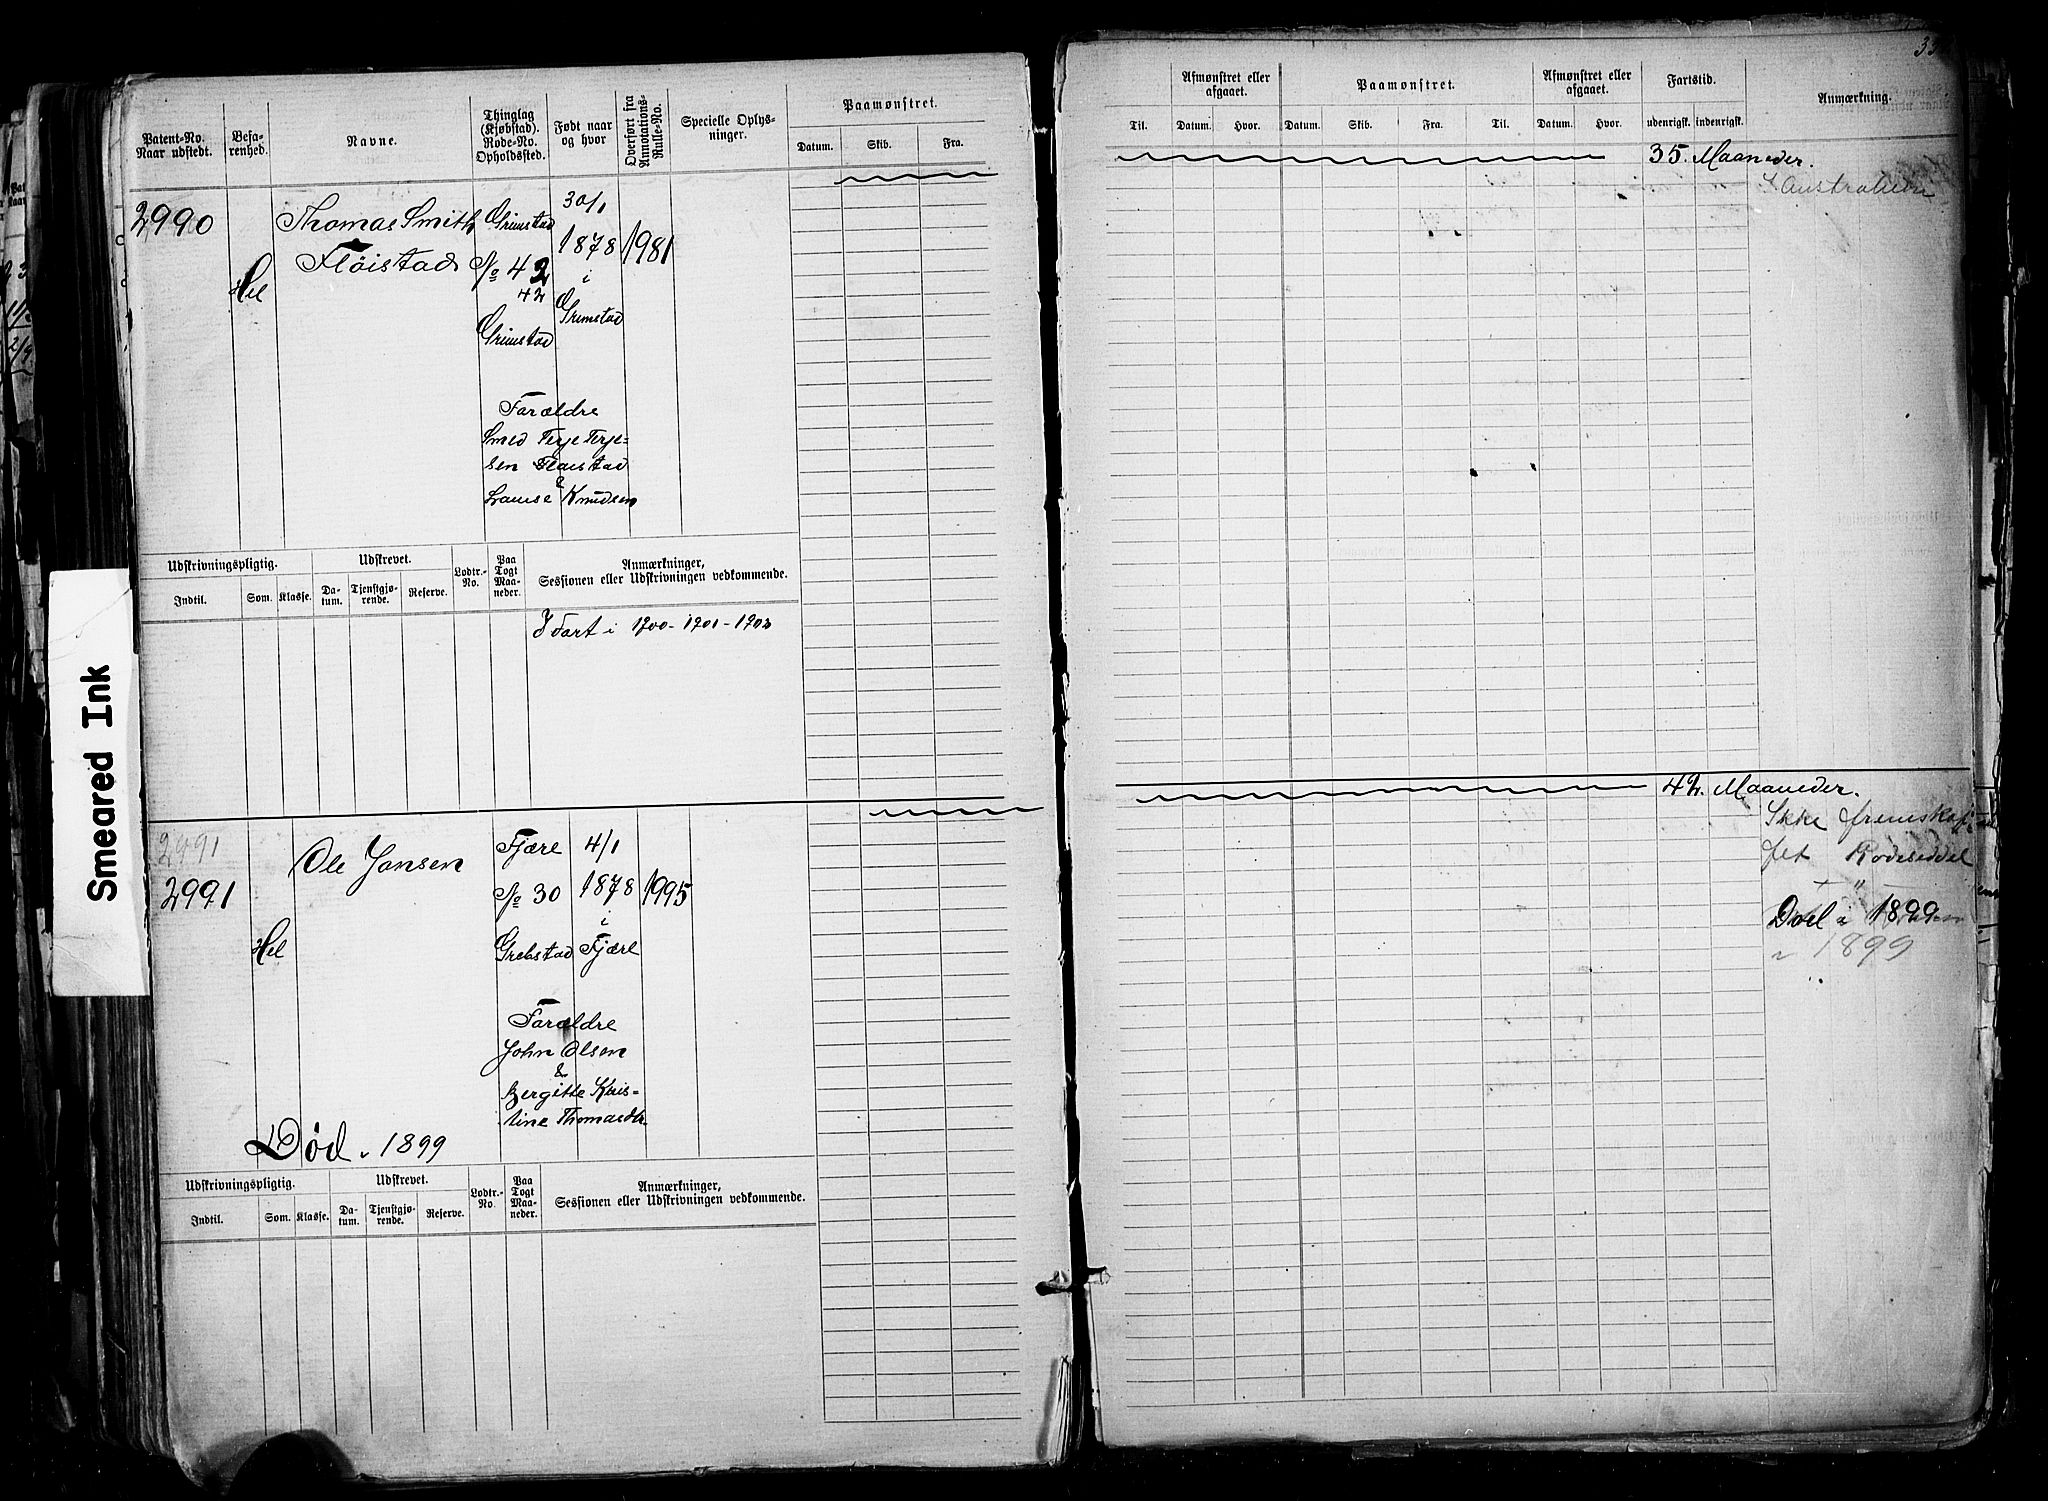 Smeared Ink
Patent-No.
Naar udstedt.
Befa-
renhed.
Navne.
Thinglag
(Kjøbstad).
Rode-No.
Opholdssted.
Født naar
og hvor
Overført fra
Annotations-
Rulle-No.
Specielle Oplys-
ninger.
Paamønstret.
Datum.
Skib.
Fra.
2990
Hel
Thomas Smith
Fløistad
Grimstad
No 42
42
Grimstad
30/1
1878
i
Grimstad
1981
Forældre
Smed Terje Terje-
sen Fløistad
&
Louise Knudsen
Udskrivningspligtig.
Udskrevet.
Lodtr.-
No.
Paa
Togt
Maa-
neder.
Anmærkninger,
Sessionen eller Udskrivningen vedkommende.
Indtil.
Som.
Klasse.
Da-
tum.
Tjenstgjø-
rende.
Reserve.
I Fart i 1900-1901-1902
2991
2991
Hel
Ole Jansen
Fjære
No 30
Grebstad
4/1
1878
i
Fjære
1995
Forældre
John Olsen
&
Bergitte Kris-
tine Thomasdtr.
Død i 1899
Udskrivningspligtig.
Udskrevet.
Lodtr.-
No.
Paa
Togt
Maa-
neder.
Anmærkninger,
Sessionen eller Udskrivningen vedkommende.
Indtil.
Som.
Klasse.
Da-
tum.
Tjenstgjø-
rende.
Reserve.
Afmønstret eller
afgaaet.
Paamønstret.
Afmønstret eller
afgaaet.
Fartstid.
Anmærkning.
Til.
Datum.
Hvor.
Datum.
Skib.
Fra.
Til.
Datum.
Hvor.
udenrigsk.
indenrigsk.
35. Maaneder.
I Australien
42. Maaneder.
Ikke fremskaf-
fet Rodeseddel
Død i 1899
i 1899